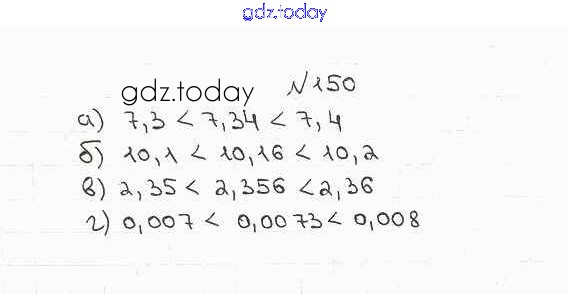 gdz.today
gdz.today №150
а) 7,3 < 7,34 < 7,4
б) 10,1 < 10,16 < 10,2
в) 2,35 < 2,356 < 2,36
г) 0,007 < 0,0073 < 0,008